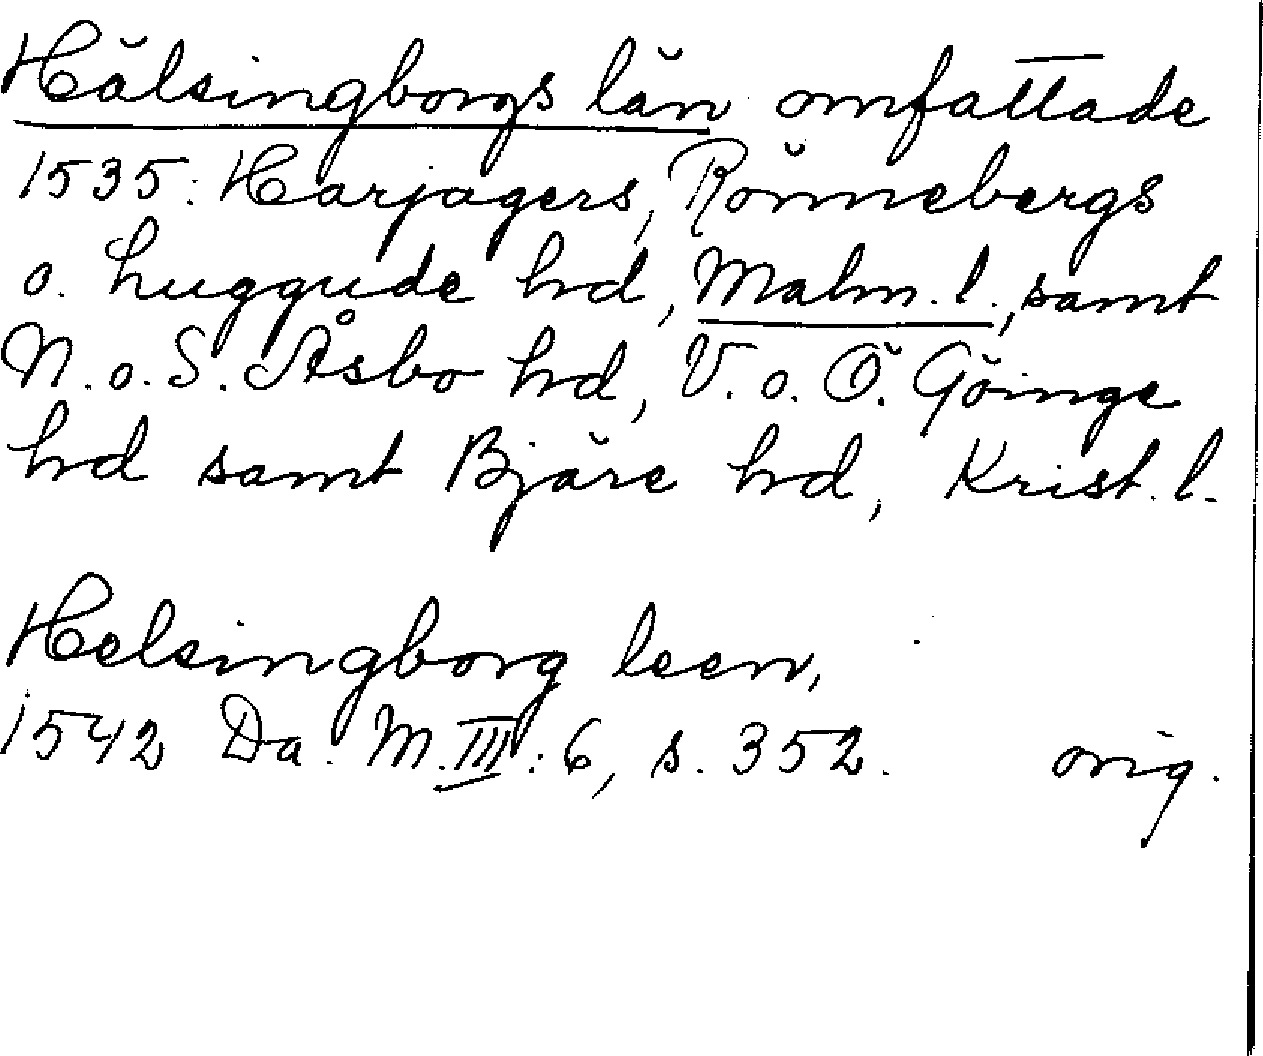 Hälsingborgs län omfattade
1535: Harjagers, Rönnebergs
o. Luggude hd, Malm. l., samt
N. o. S. Åsbo hd, V. o. Ö. Göinge
hd samt Bjäre hd, Krist. l.
Helsingborg leen,
1542 Da. M. III: 6, s. 352. orig.